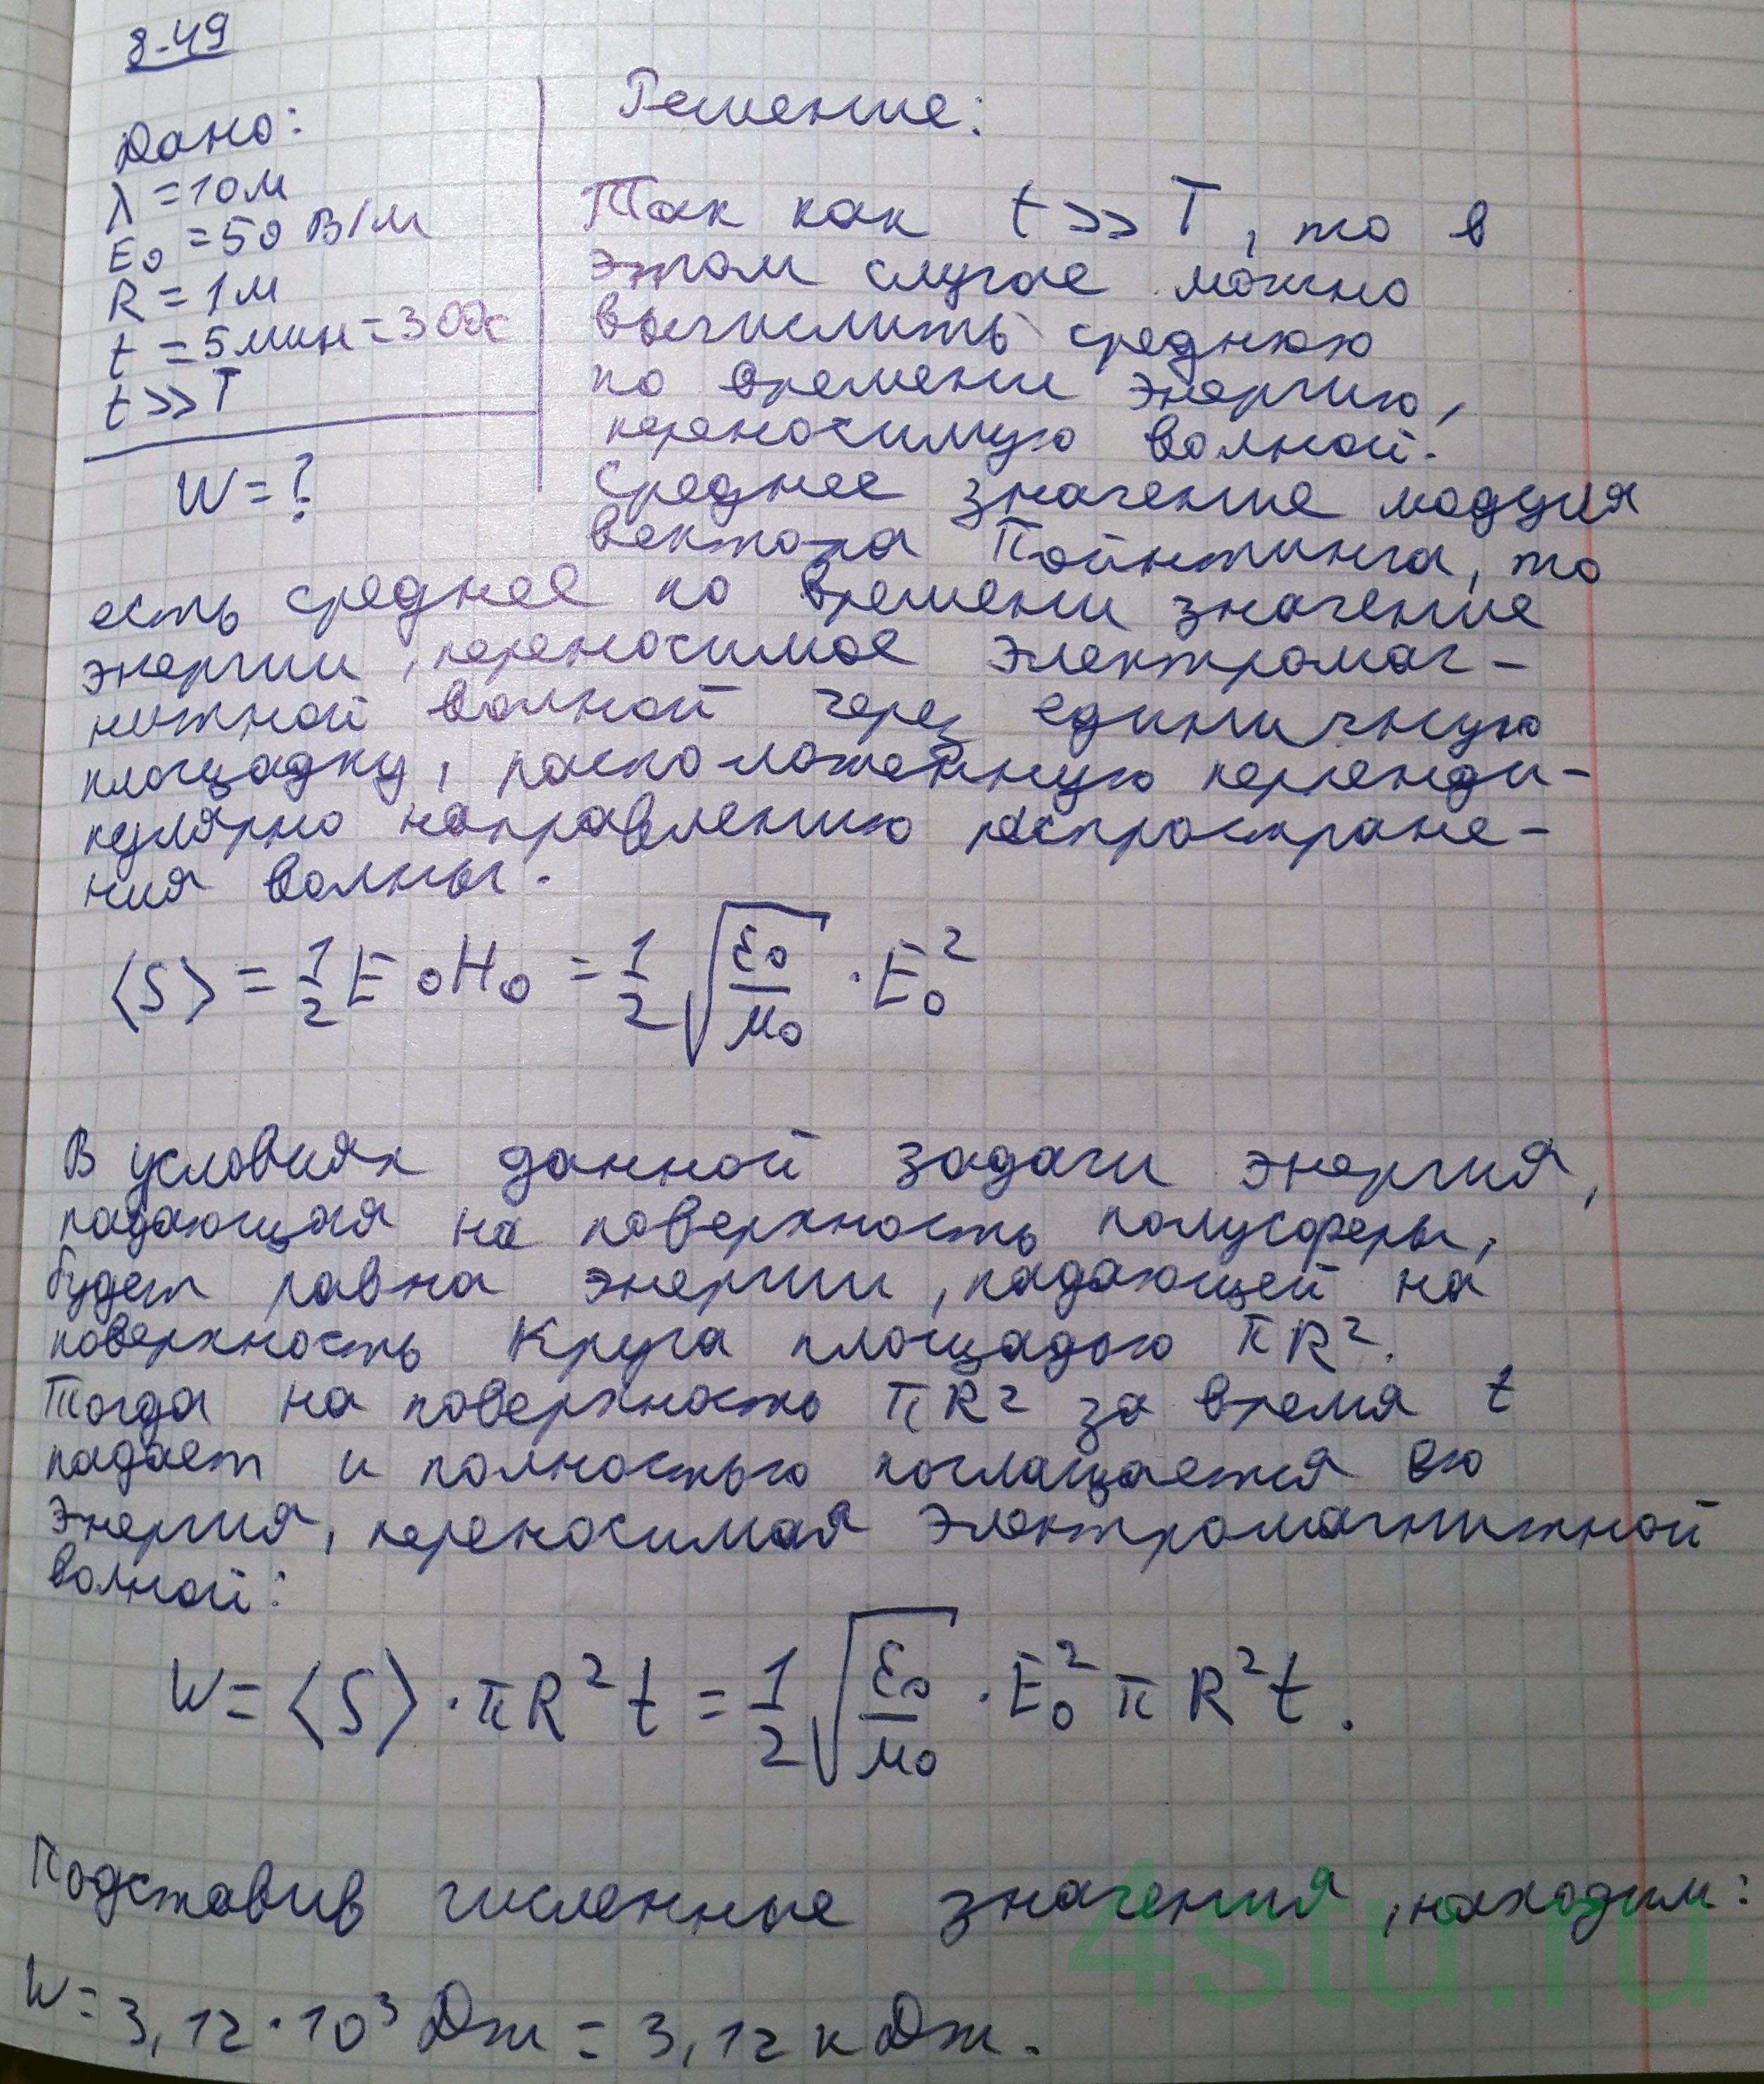 8-49
Дано:
λ = 10 м
E₀ = 50 В/м
R = 1 м
t = 5 мин = 300с
t >> T
W = ?
Решение:
Так как t >> T, то в
этом случае можно
вычислить среднюю
по времени энергию,
переносимую волной.
Среднее значение модуля
вектора Пойнтинга, то
есть среднее по времени значение
энергии, переносимое электромаг-
нитной волной через единичную
площадку, расположенную перпенди-
кулярно направлению распростране-
ния волны.
⟨S⟩ = 1/2 E₀H₀ = 1/2 √(ε₀/μ₀) · E₀²
В условиях данной задачи энергия,
падающая на поверхность полусферы,
будет равна энергии, падающей на
поверхность круга площадью πR².
Тогда на поверхность πR² за время t
падает и полностью поглощается ею
энергия, переносимая электромагнитной
волной:
W = ⟨S⟩ · πR²t = 1/2 √(ε₀/μ₀) · E₀² πR²t.
Подставив численные значения, находим:
W = 3,12 · 10³ Дж = 3,12 кДж.
4stu.ru